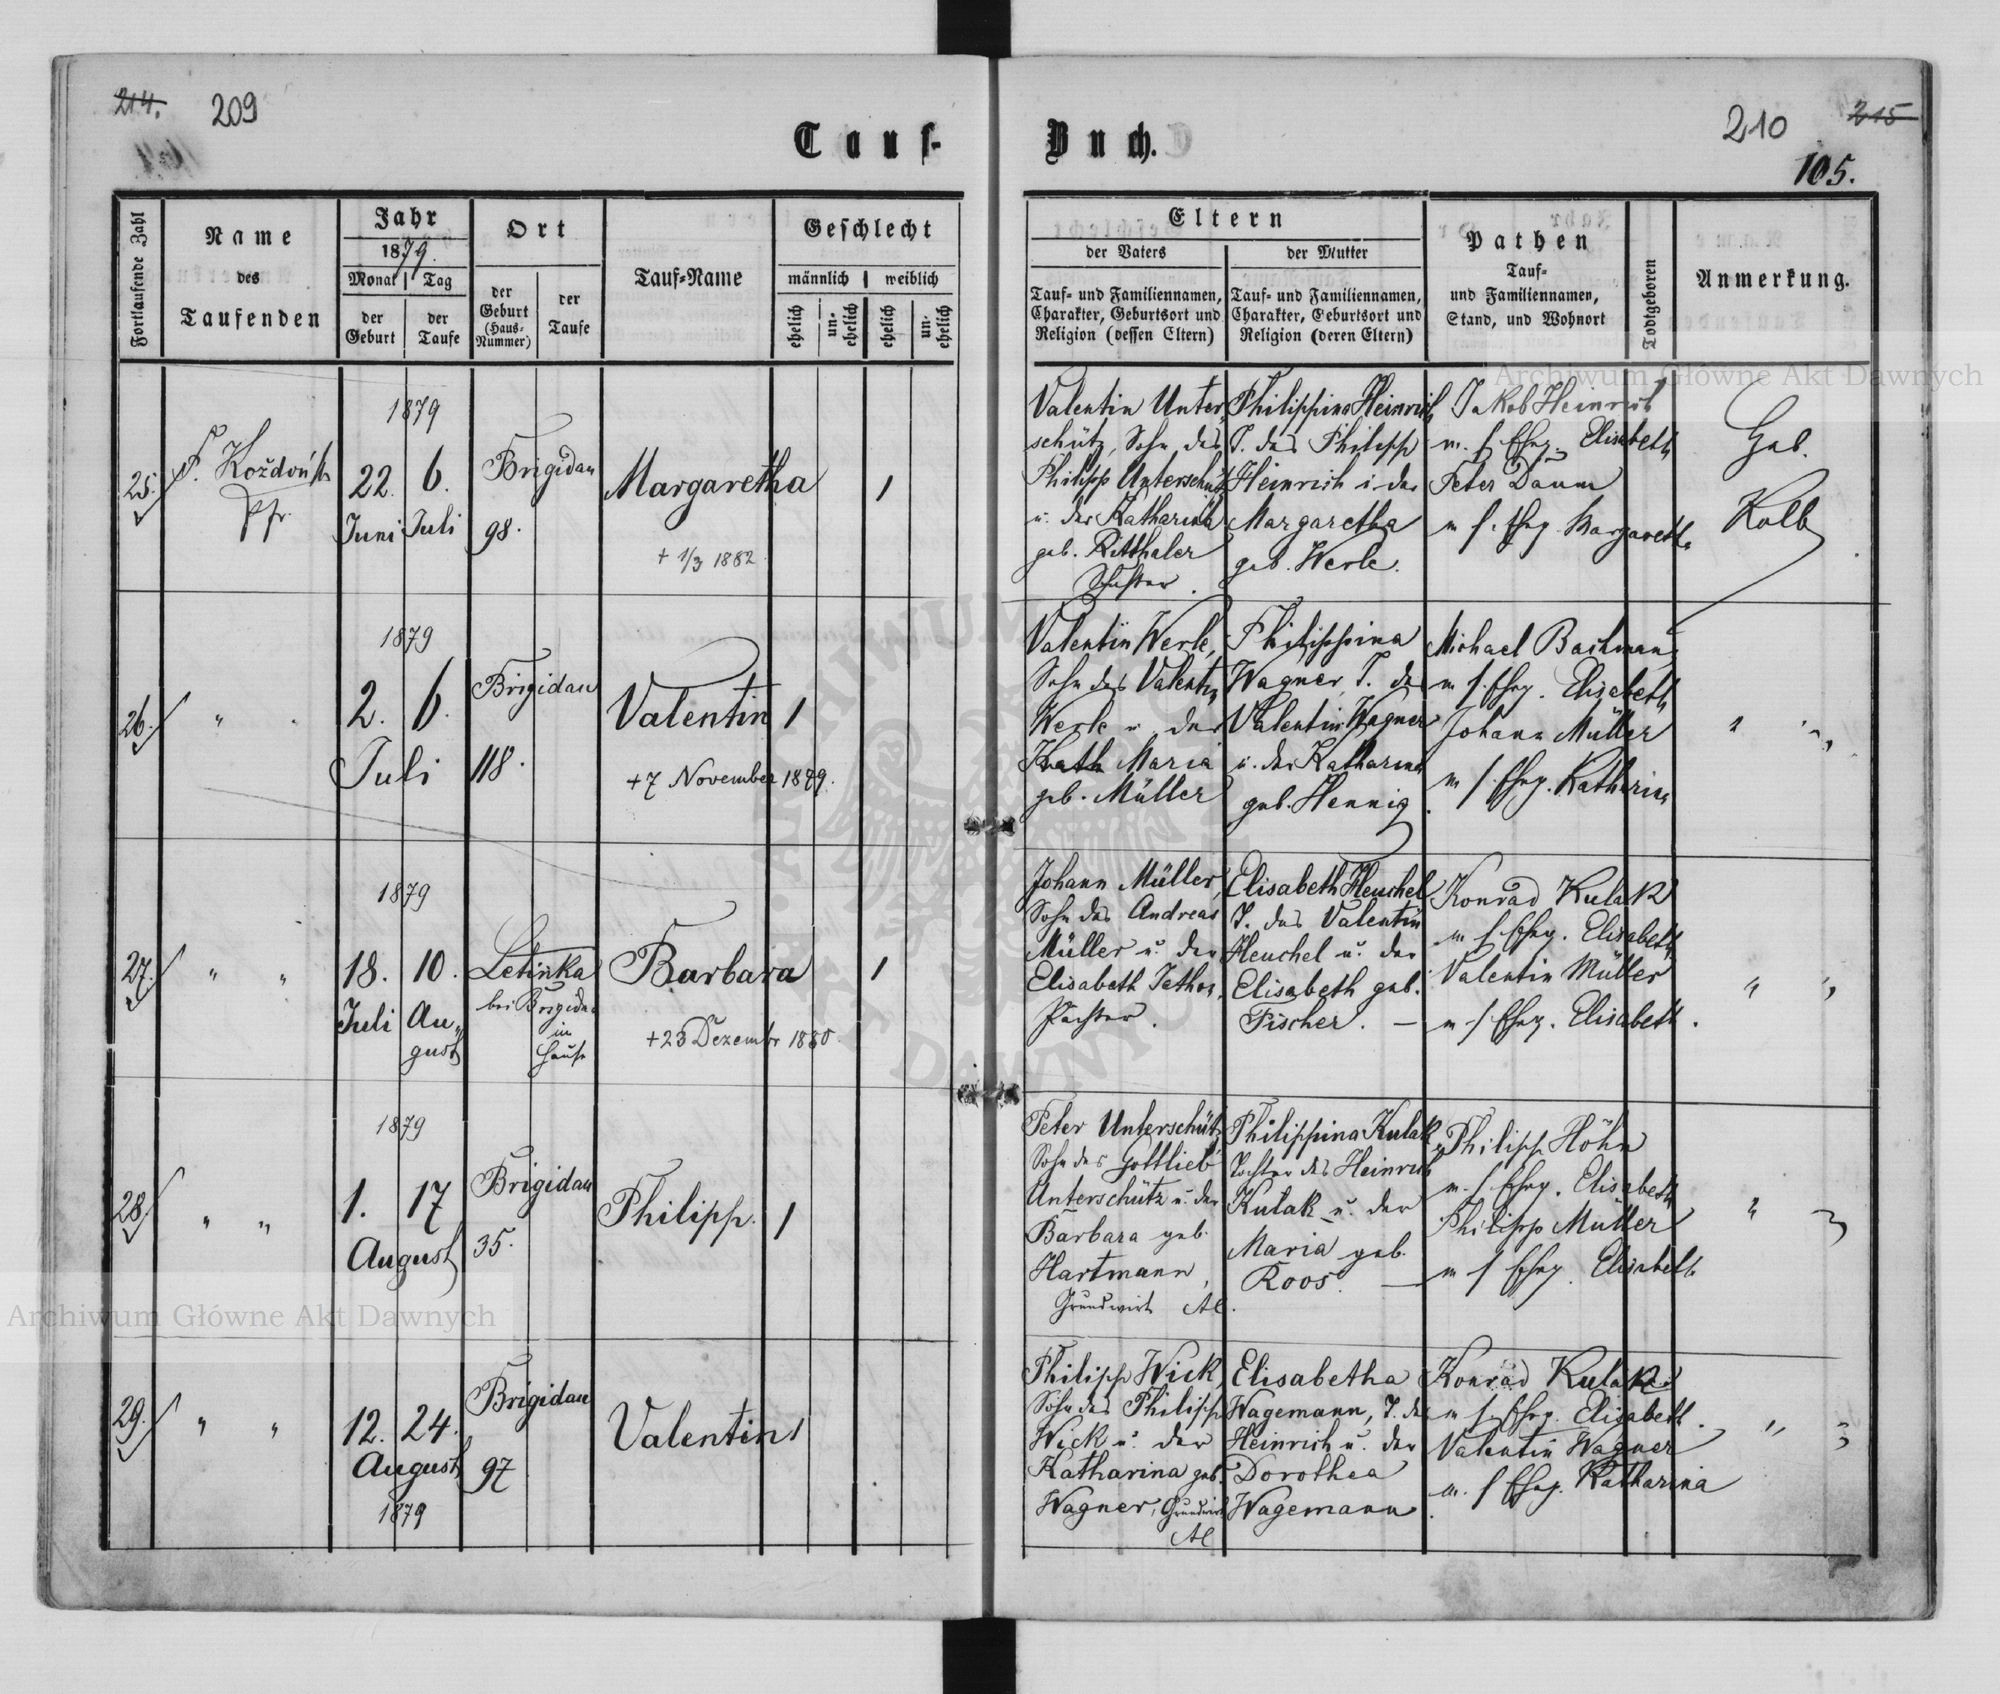 214. 209
Tauf-
Fortlaufende Zahl
Name
des
Taufenden
Jahr
1879.
Monat Tag
der Geburt
der Taufe
Ort
der Geburt (Haus-Nummer)
der Taufe
Tauf-Name
Geschlecht
männlich weiblich
ehelich
un-ehelich
ehelich
un-ehelich
25.
Pfr.
1879
22. 6.
Juni Juli
Brigidau
98.
Margaretha
1
+ 1/3 1882
26.
" "
1879
2. 6.
Juli
Brigidau
118.
Valentin 1
+ 7 November 1879.
27.
" "
1879
18. 10.
Juli Au-
gust
Letinka
bei Brigidau
im
Hause
Barbara
1
+ 23 Dezember 1880
28.
" "
1879
1. 17
August
Brigidau
35.
Philipp. 1
29.
" "
12. 24.
August
1879
Brigidau
97
Valentin 1
210 215
105.
Buch.
Eltern
der Vaters
Tauf- und Familiennamen,
Charakter, Geburtsort und
Religion (dessen Eltern)
der Mutter
Tauf- und Familiennamen,
Charakter, Geburtsort und
Religion (deren Eltern)
Pathen
Tauf-
und Familiennamen,
Stand, und Wohnort
Todtgeboren
Anmerkung.
Valentin Unter-
schütz, Sohn des
Philipp Unterschütz
u. der Katharina
geb. Ritthaler
Schuster.
Philippina Heinrich
T. des Philipp
Heinrich u. der
Margaretha
geb. Werle.
Jakob Heinrich
m. s. Eheg. Elisabeth
Peter Daum
m s. Ehg. Margareth
Geb.
Kolb
Valentin Werle,
Sohn des Valentin
Werle u. der
Kath Maria
geb. Müller
Philippina
Wagner, T. des
Valentin Wagner
u. der Katharina
geb. Hennig.
Michael Bachmann
m s. Eheg. Elisabeth
Johann Müller
m s. Eheg. Katharina
" "
Johann Müller,
Sohn des Andreas
Müller u. der
Elisabeth
Pächter.
Elisabeth Heuchel
T. des Valentin
Heuchel u. der
Elisabeth geb.
Fischer. —
Konrad Kulak
m s. Ehg. Elisabeth
Valentin Müller
m s Ehg. Elisabeth.
" "
Peter Unterschütz
Sohn des Gottlieb
Unterschütz u. der
Barbara geb.
Hartmann,
Grundwirth AC.
Philippina Kulak
Tochter des Heinrich
Kulak u. der
Maria geb.
Roos. —
Philipp Höhn
m. s Ehg. Elisabeth
Philipp Müller
m s Ehg. Elisabeth
" "
Philipp Wick,
Sohn des Philipp
Wick u. der
Katharina geb.
Wagner, Grundwirth
AC
Elisabetha
Wagemann, T. des
Heinrich u. der
Dorothea
Wagemann.
Konrad Kulak
m s. Ehg. Elisabeth.
Valentin Wagner
m. s Ehg. Katharina
" "
Archiwum Główne Akt Dawnych
Archiwum Główne Akt Dawnych